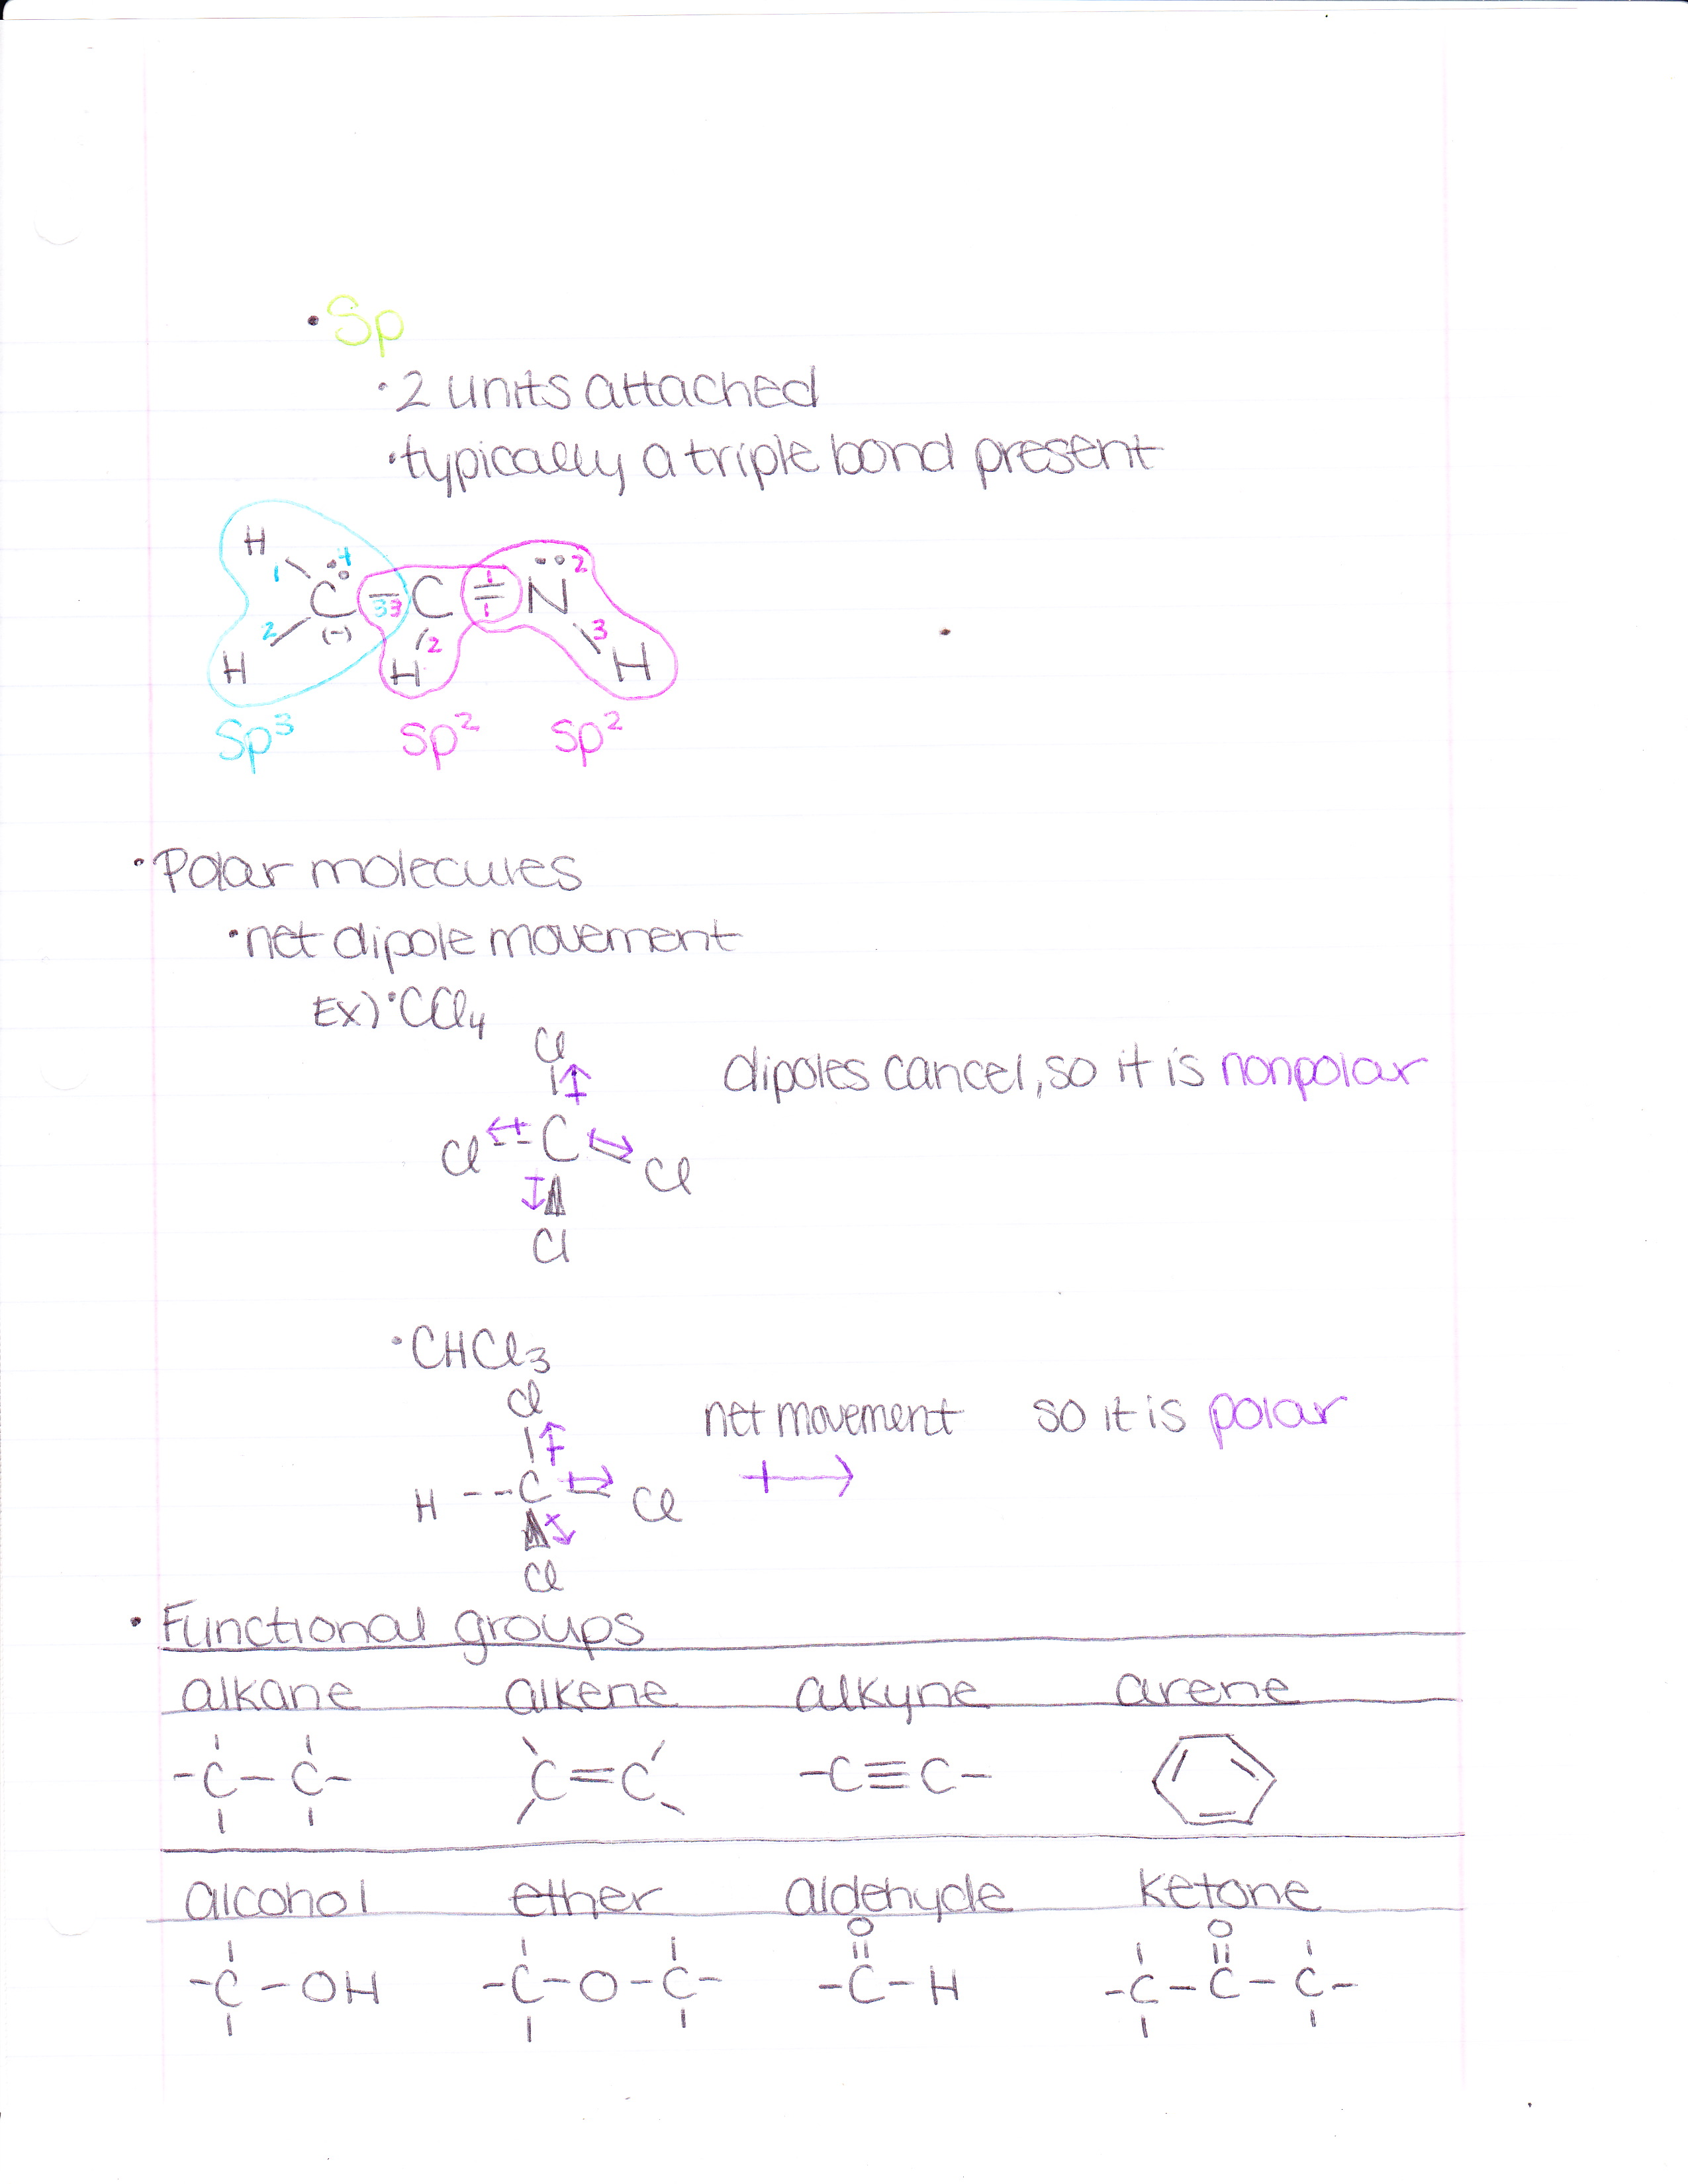 •Sp
•2 units attached
•typically a triple bond present
H
1 4
C 33 C 1 N 2
2 (-) 2 1 3
H H H
Sp³ Sp² Sp²
•Polar molecules
•net dipole movement
Ex) •CCl₄
Cl
dipoles cancel, so it is nonpolar
Cl C Cl
Cl
•CHCl₃
Cl
net movement so it is polar
H --C Cl
Cl
• Functional groups
alkane alkene alkyne arene
-C-C- C=C -C≡C-
alcohol ether aldehyde ketone
O O
-C-OH -C-O-C- -C-H -C-C-C-